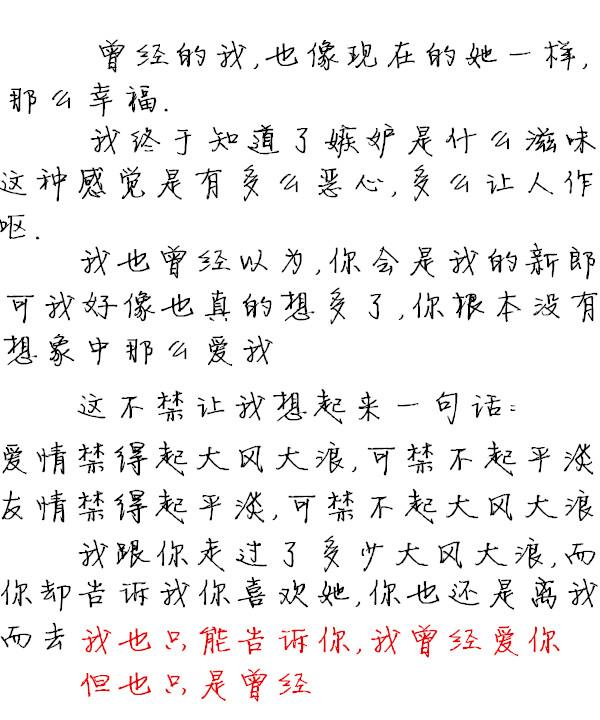 曾经的我,也像现在的她一样,
那么幸福.
我终于知道了嫉妒是什么滋味
这种感觉是有多么恶心,多么让人作
呕.
我也曾经以为,你会是我的新郎
可我好像也真的想多了,你根本没有
想象中那么爱我
这不禁让我想起来一句话:
爱情禁得起大风大浪,可禁不起平淡
友情禁得起平淡,可禁不起大风大浪
我跟你走过了多少大风大浪,而
你却告诉我你喜欢她,你也还是离我
而去 我也只能告诉你,我曾经爱你
但也只是曾经